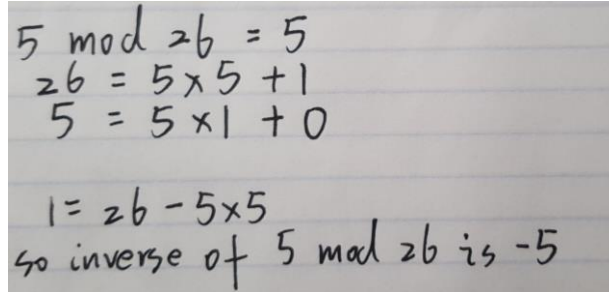 5 mod 26 = 5
26 = 5×5 +1
5 = 5×1 +0
1= 26 - 5×5
so inverse of 5 mod 26 is -5